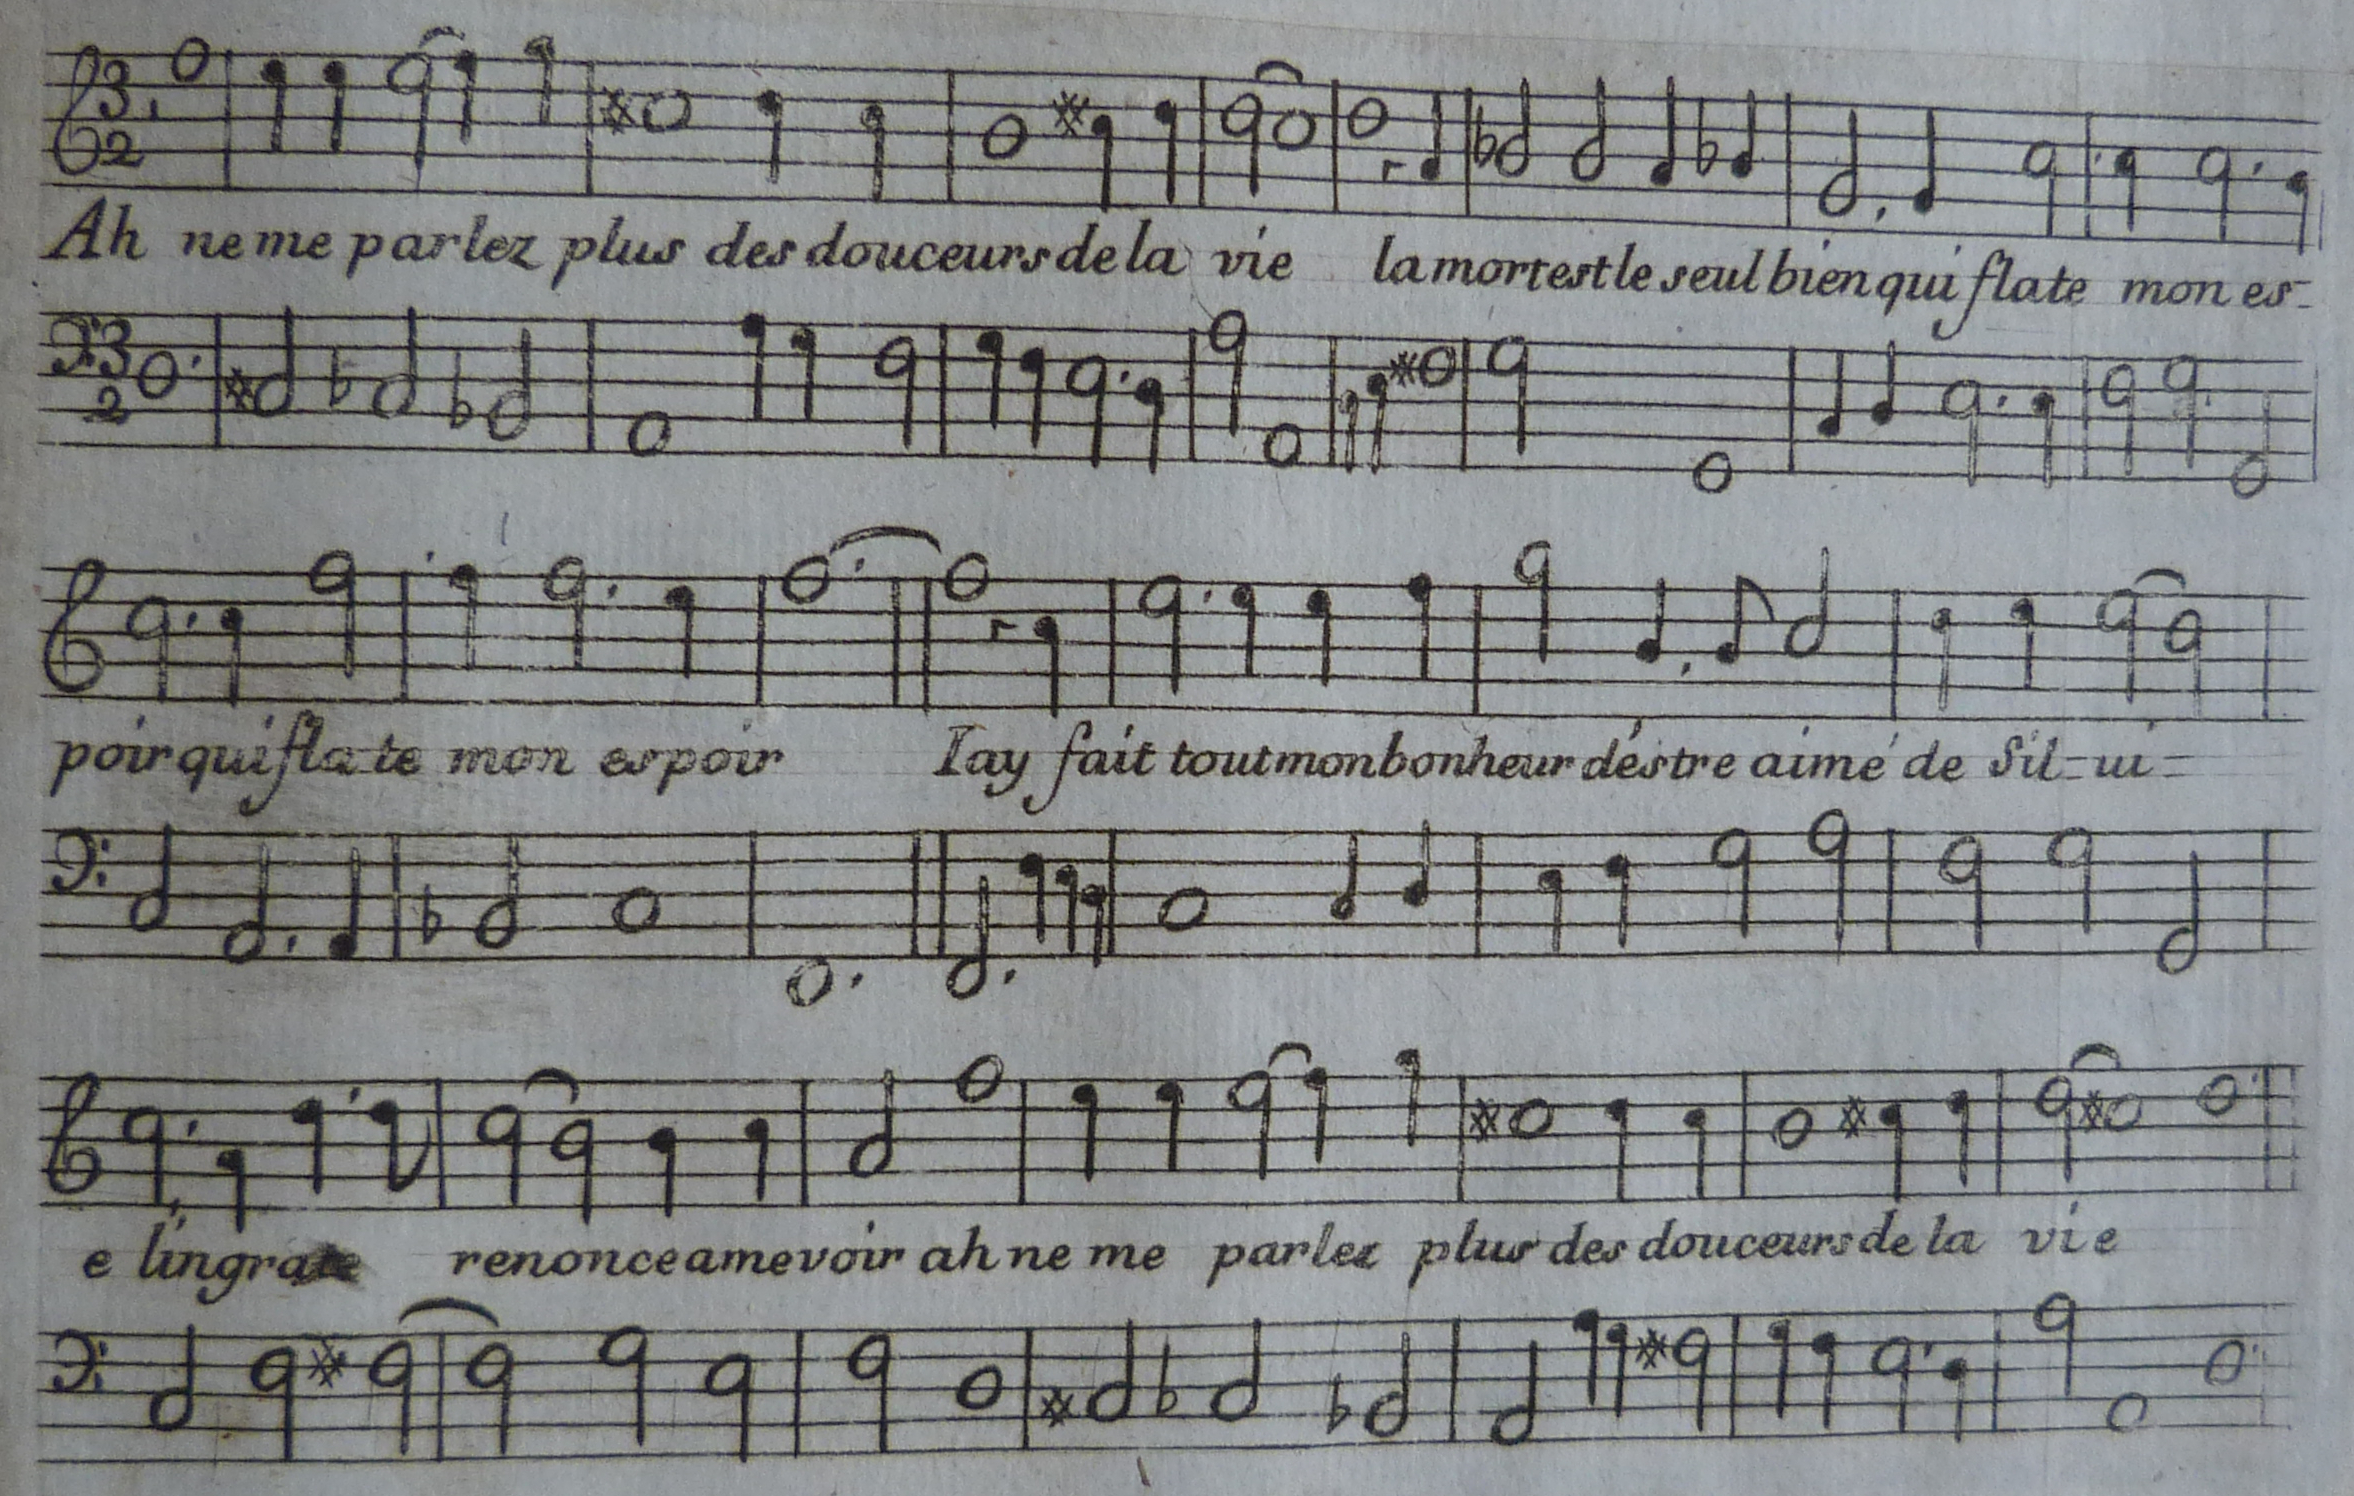 3
2
Ah ne me parlez plus des douceurs de la vie la mort est le seul bien qui flate mon es-
3
2
poir qui flate mon espoir Iay fait tout mon bonheur déstre aimé de Sil-ui-
e lingrate renonce a me voir ah ne me parlez plus des douceurs de la vie